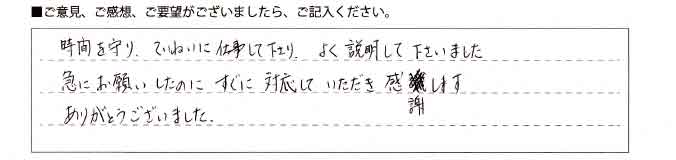 ■ご意見、ご感想、ご要望がございましたら、ご記入ください。
時間を守り、ていねいに仕事して下さり、よく説明して下さいました
急にお願いしたのに すぐに 対応して いただき 感謝します
ありがとうございました.